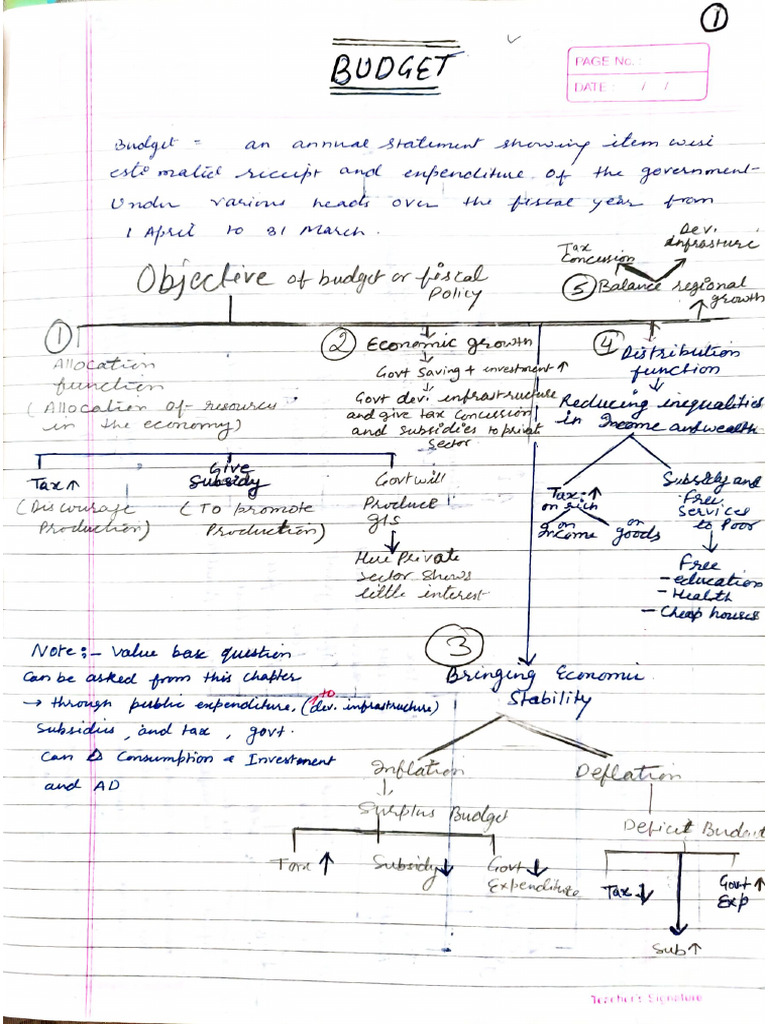 1
BUDGET
PAGE No. :
DATE : / /
Budget = an annual statement showing item wise
estimated receipt and expenditure of the government
Under various heads over the fiscal year from
1 April to 31 March.
Objective of budget or fiscal
Policy
1
Allocation
function
(Allocation of resources
in the economy)
Tax ↑
(Discourage
Production)
Give
Subsidy
(To promote
Production)
Govt will
Produce
g/s
↓
Here Private
sector shows
little interest
2 Economic growth
↓
Govt saving + investment ↑
↓
Govt devi infrastructure
and give tax concession
and subsidies to private
sector
4 Distribution
function
↓
Reducing inequalities
in Income and wealth
Tax ↑
on rich
on
Income
on
goods
Subsidy and
Free
Services
to Poor
↓
Free
- education
- Health
- Cheap houses
5 Balance regional
growth
Tax
Concession
Dev.
Infrasture
3
Bringing Economic
Stability
Inflation
↓
Surplus Budget
Tax ↑
Subsidy ↓
Govt ↓
Expenditure
Deflation
Deficit Budget
Tax ↓
Sub ↑
Govt ↑
Exp
Note :- Value base question
Can be asked from this chapter
→ through public expenditure, (to dev. infrastructure)
Subsidies, and tax, govt.
Can Δ Consumption & Investment
and AD
Teacher's Signature